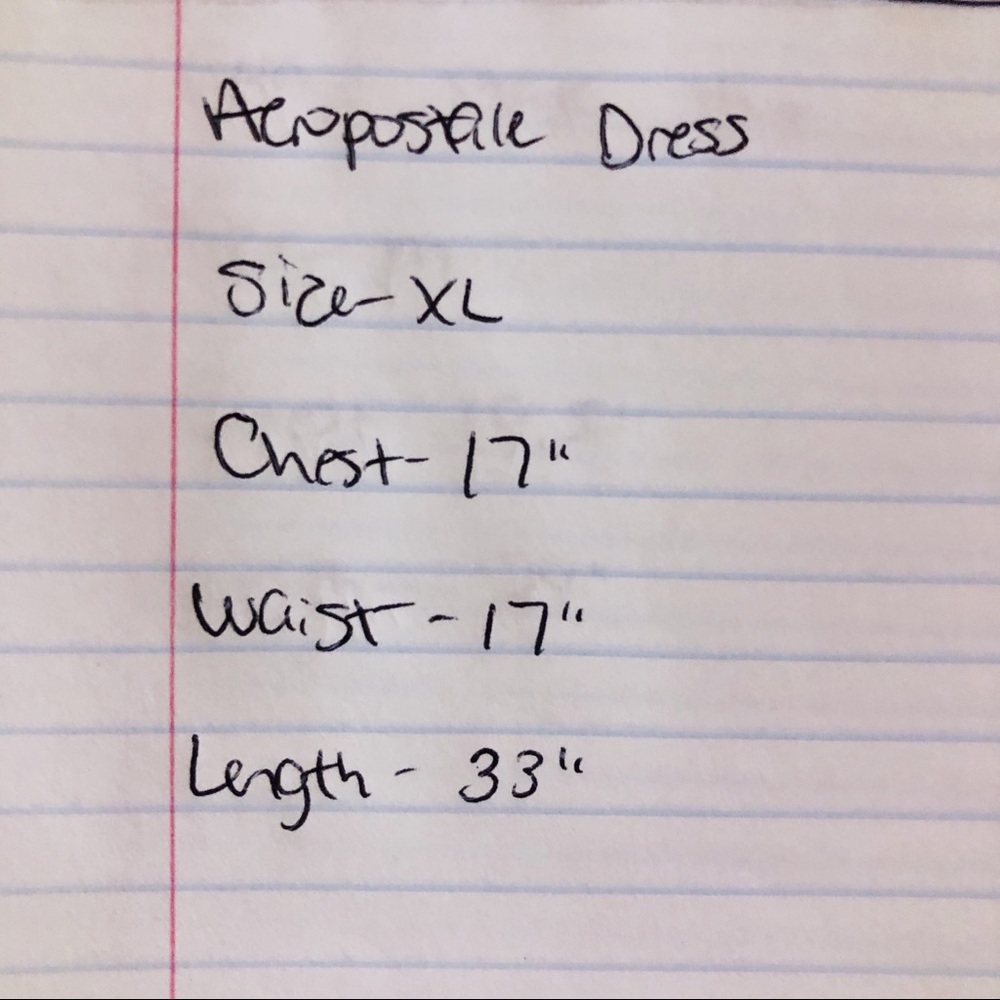 Aeropostale Dress
Size- XL
Chest- 17"
Waist - 17"
Length - 33"